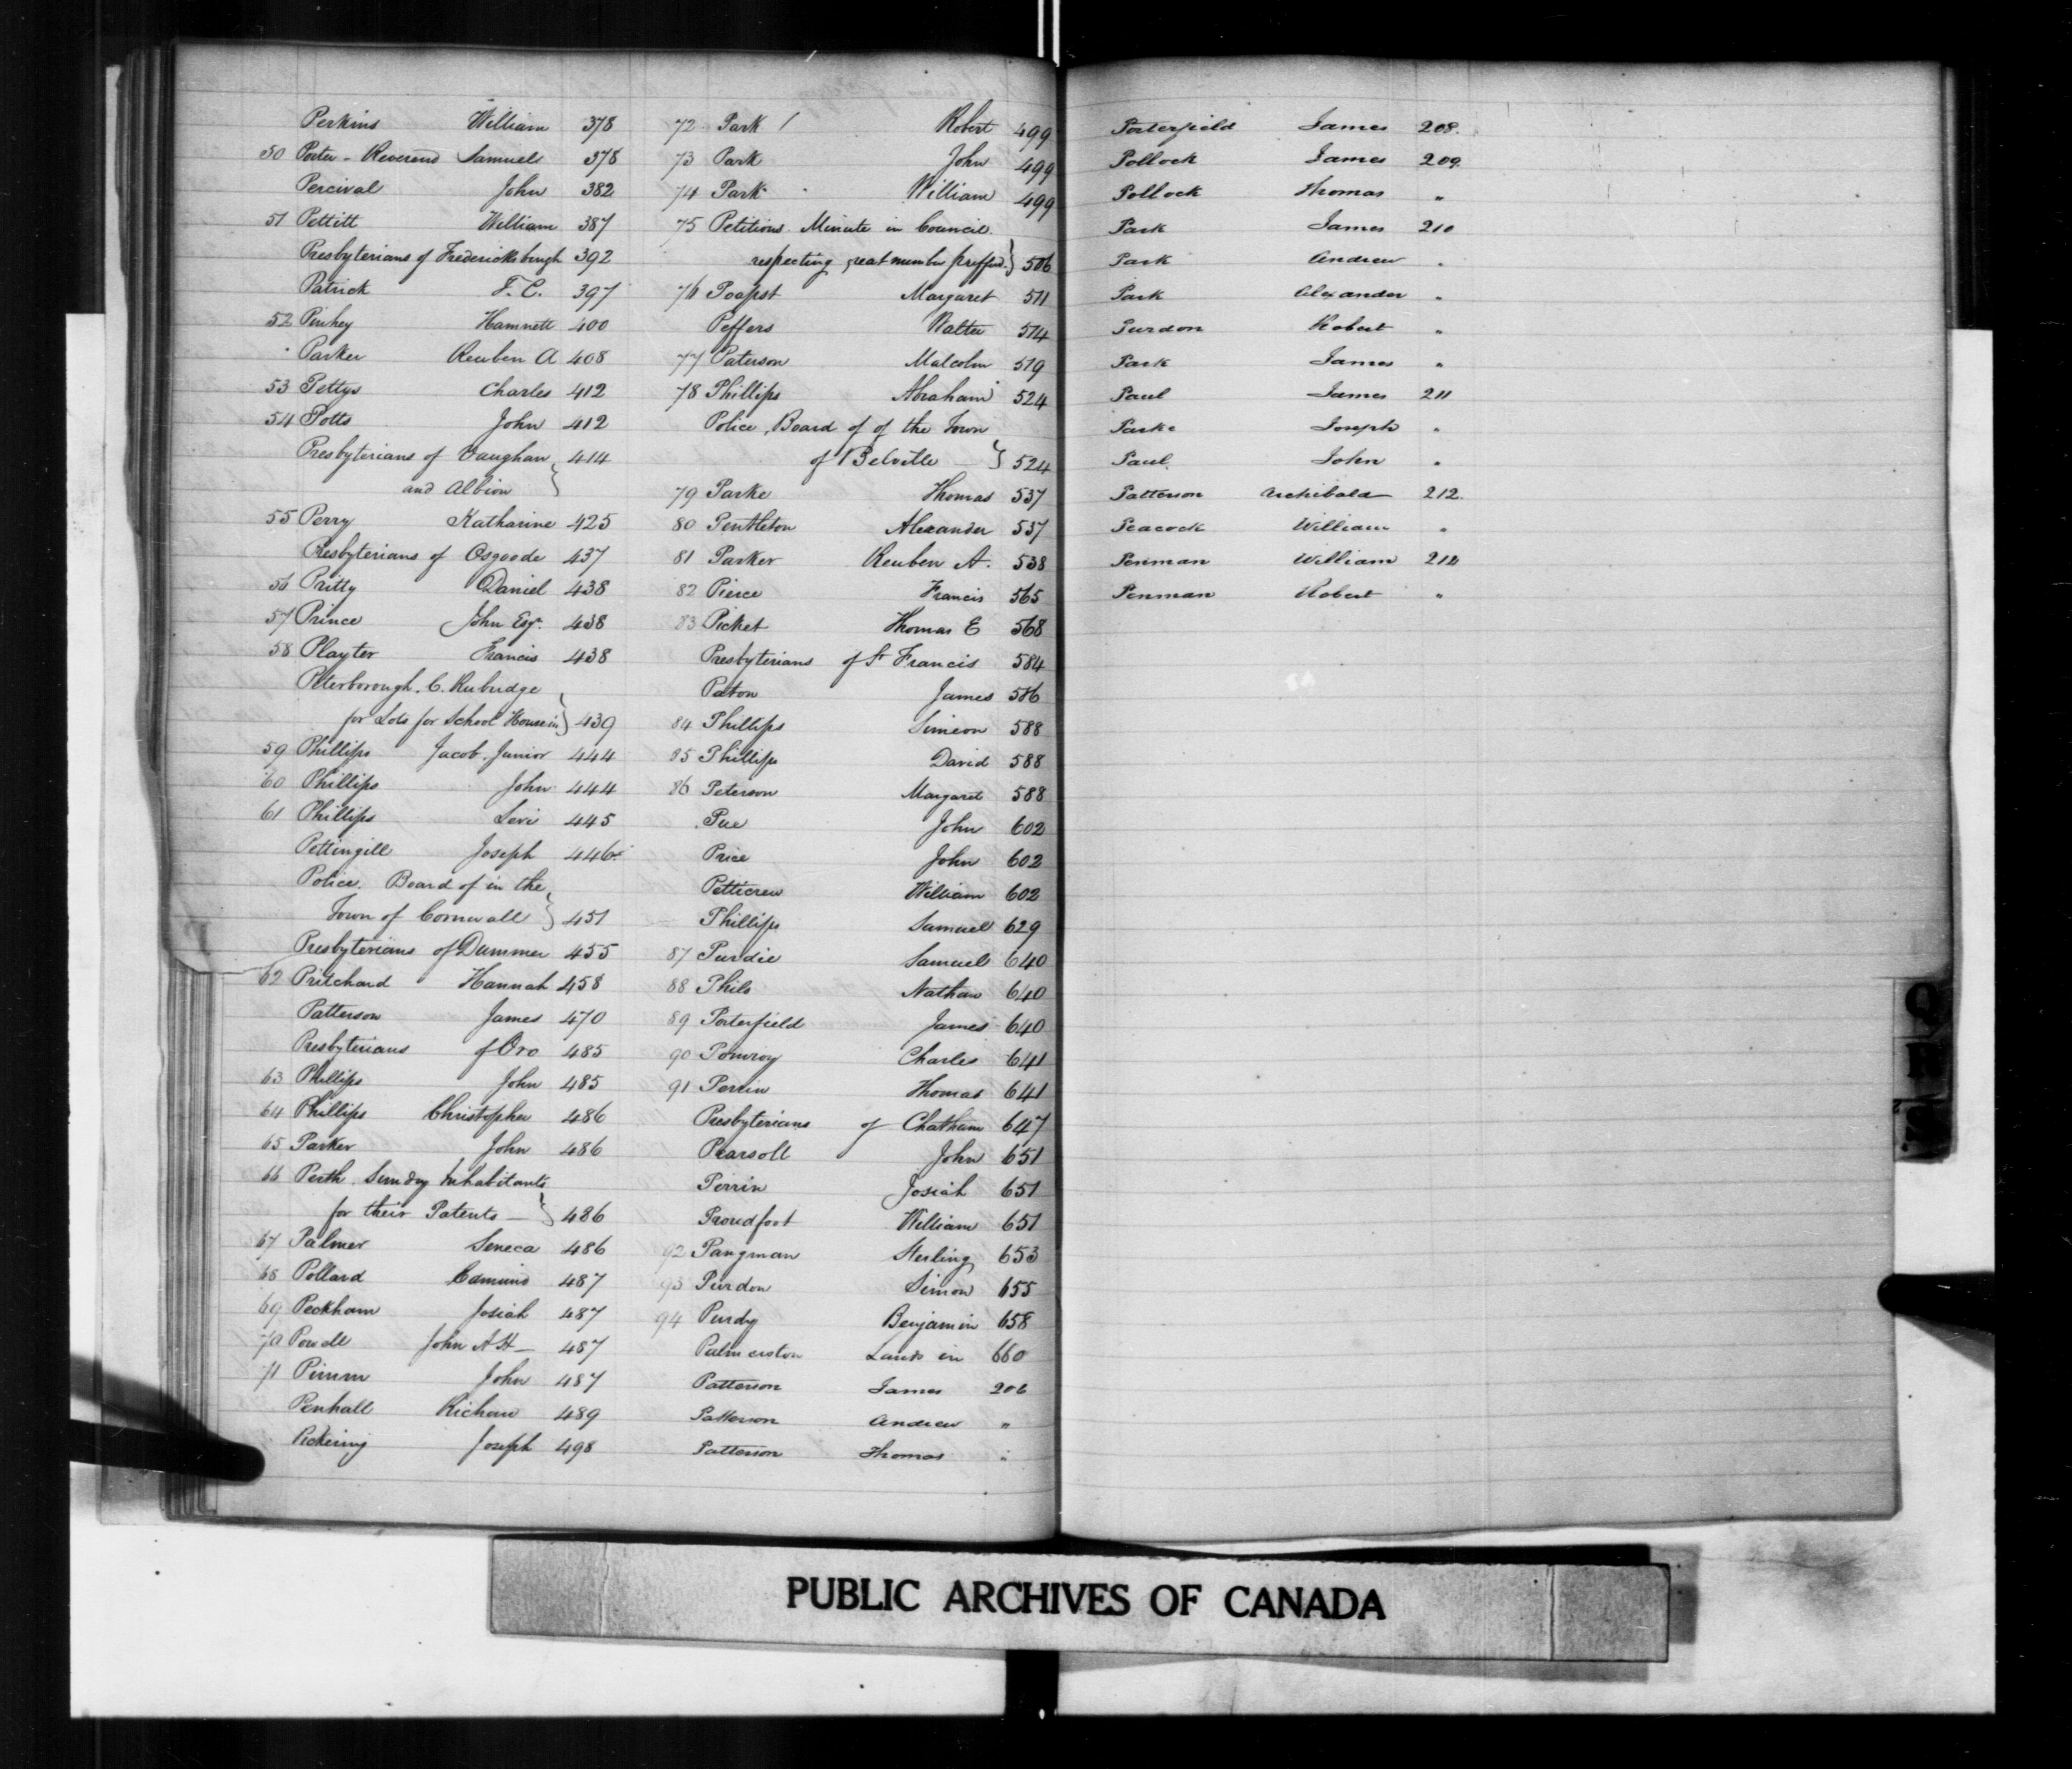 Perkins William 378
50 Porter - Reverend Samuel 378
Percival John 382
51 Pettitt William 387
Presbyterians of Fredericksburgh 392
Patrick F. C. 397
52 Pinhey Hamnett 400
Parker Reuben A 408
53 Pettys Charles 412
54 Potts John 412
Presbyterians of Vaughan 414
and Albion }
55 Perry Katharine 425
Presbyterians of Osgoode 437
56 Pritty Daniel 438
57 Prince John Esqr. 438
58 Playter Francis 438
Peterborough. C. Rubridge
for Lots for School House in } 439
59 Phillips Jacob Junior 444
60 Phillips John 444
61 Phillips Levi 445
Pettingill Joseph 446
Police. Board of in the
Town of Cornwall } 451
Presbyterians of Dummer 455
62 Pritchard Hannah 458
Patterson James 470
Presbyterians of Oro 485
63 Phillips John 485
64 Phillips Christopher 486
65 Parker John 486
66 Perth. Sundry Inhabitants
for their Patents - } 486
67 Palmer Seneca 486
68 Pollard Edmund 487
69 Peckham Josiah 487
70 Powell John A H - 487
71 Pimm John 487
Penhall Richard 489
Pickering Joseph 498
72 Park / Robert 499
73 Park John 499
74 Park William 499
75 Petitions. Minute in Council.
respecting great number } 506
76 Poapst Margaret 511
Peffers Walter 514
77 Paterson Malcolm 519
78 Phillips Abraham 524
Police, Board of of the Town
of Belville } 524
79 Parke Thomas 537
80 Pentleton Alexander 537
81 Parker Reuben A. 538
82 Pierce Francis 565
83 Picket Thomas E 568
Presbyterians of St Francis 584
Paton James 586
84 Phillips Simeon 588
85 Phillips David 588
86 Peterson Margaret 588
Pue John 602
Price John 602
Petticrew William 602
Phillips Samuel 629
87 Purdie Samuel 640
88 Philo Nathan 640
89 Porterfield James 640
90 Pomroy Charles 641
91 Perrin Thomas 641
Presbyterians of Chatham 647
Pearsoll John 651
Perrin Josiah 651
Proudfoot William 651
92 Pangman Sterling 653
93 Purdon Simon 655
94 Purdy Benjamin 658
Palmerston Lands in 660
Patterson James 206
Patterson Andrew "
Patterson Thomas "
Porterfield James 208.
Pollock James 209.
Pollock Thomas "
Park James 210
Park Andrew "
Park Alexander "
Purdon Robert "
Park James "
Paul James 211
Parke Joseph "
Paul John "
Patterson Archibald 212.
Peacock William "
Penman William 212
Penman Robert "
Q
R
S
PUBLIC ARCHIVES OF CANADA